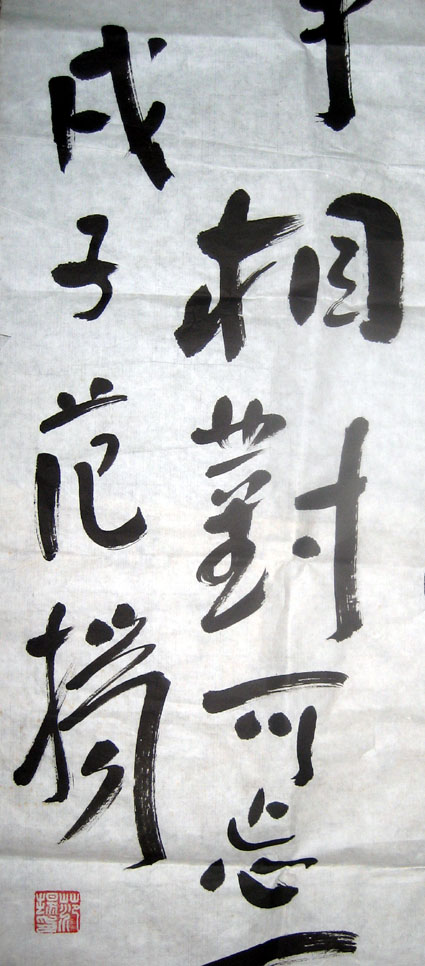 相對可忘
戊子范揚